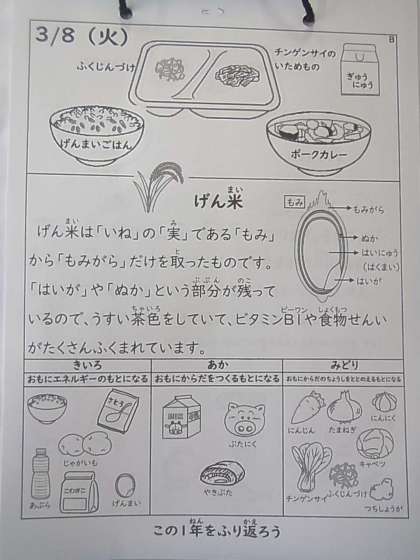 3/8（火）
8
ふくじんづけ
チンゲンサイの
いためもの
ぎゅう
にゅう
げんまいごはん
ポークカレー
げん米
まい
もみ
もみがら
ぬか
はいにゅう
（はくまい）
はいが
げん米は「いね」の「実」である「もみ」
まい
み
から「もみがら」だけを取ったものです。
と
「はいが」や「ぬか」という部分が残って
ぶぶん
のこ
いるので、うすい茶色をしていて、ビタミンB1や食物せんい
ちゃいろ
ビーワン
しょくもつ
がたくさんふくまれています。
きいろ
あか
みどり
おもにエネルギーのもとになる
おもにからだをつくるもとになる
おもにからだのちょうしをととのえるもとになる
さとう
じゃがいも
こむぎこ
あぶら
げんまい
ぶたにく
やきぶた
にんじん
たまねぎ
にんにく
キャベツ
チンゲンサイ
ふくじんづけ
つちしょうが
この1年をふり返ろう
ねん
かえ